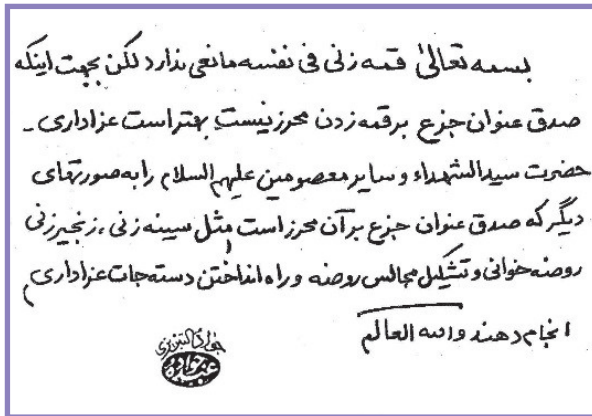 بسمه تعالیٰ قمه زنی فی نفسه مانعی ندارد لکن بجهت اینکه
صدق عنوان جزع بر قمه زدن محرز نیست بهتر است عزاداری -
حضرت سیدالشهداء و سایر معصومین علیهم السلام را به صورتهای
دیگر که صدق عنوان جزع بر آن محرز است مثل سینه زنی، زنجیر زنی
روضه خوانی و تشکیل مجالس روضه و راه انداختن دسته جات عزاداری
انجام دهند والله العالم
جواد التبریزی